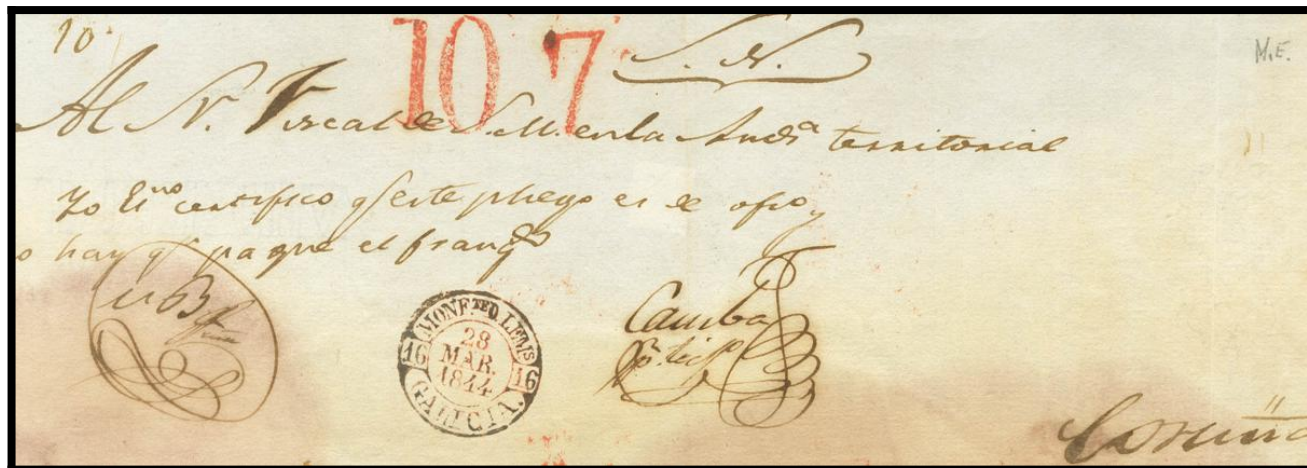 10
10 7
S. N.
M.E.
Al Sr. Fiscal de S.M. en la Auda territorial
Yo Esno certifico q este pliego es de ofio y
o hay q pague el franqo
MONF.TE D LEMS
28
MAR.
1844
16 16
GALICIA.
Camba
Coruña